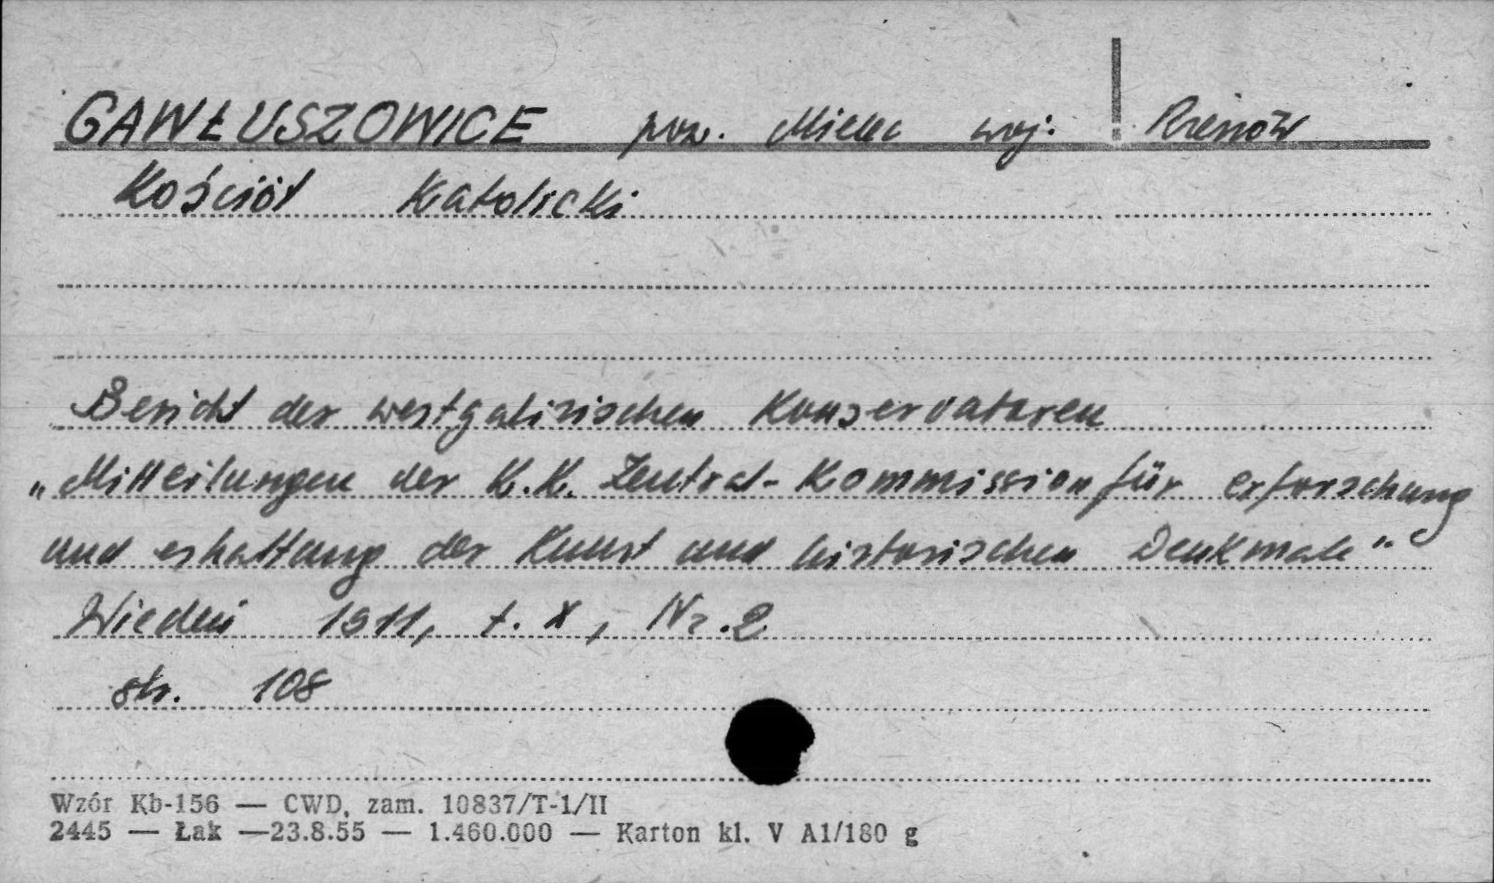 GAWŁUSZOWICE pow. Mielec woj. Rzeszów
Kościół Katolicki
Bericht der westgalizischen Konservatoren
„Mitteilungen der K.K. Zentral-Kommission für erforschung
und erhaltung der Kunst und historischen Denkmale"
Wiedeń 1911, t. X, Nr. 2
str. 108
Wzór Kb-156 — CWD, zam. 10837/T-1/II
2445 — Łak —23.8.55 — 1.460.000 — Karton kl. V A1/180 g